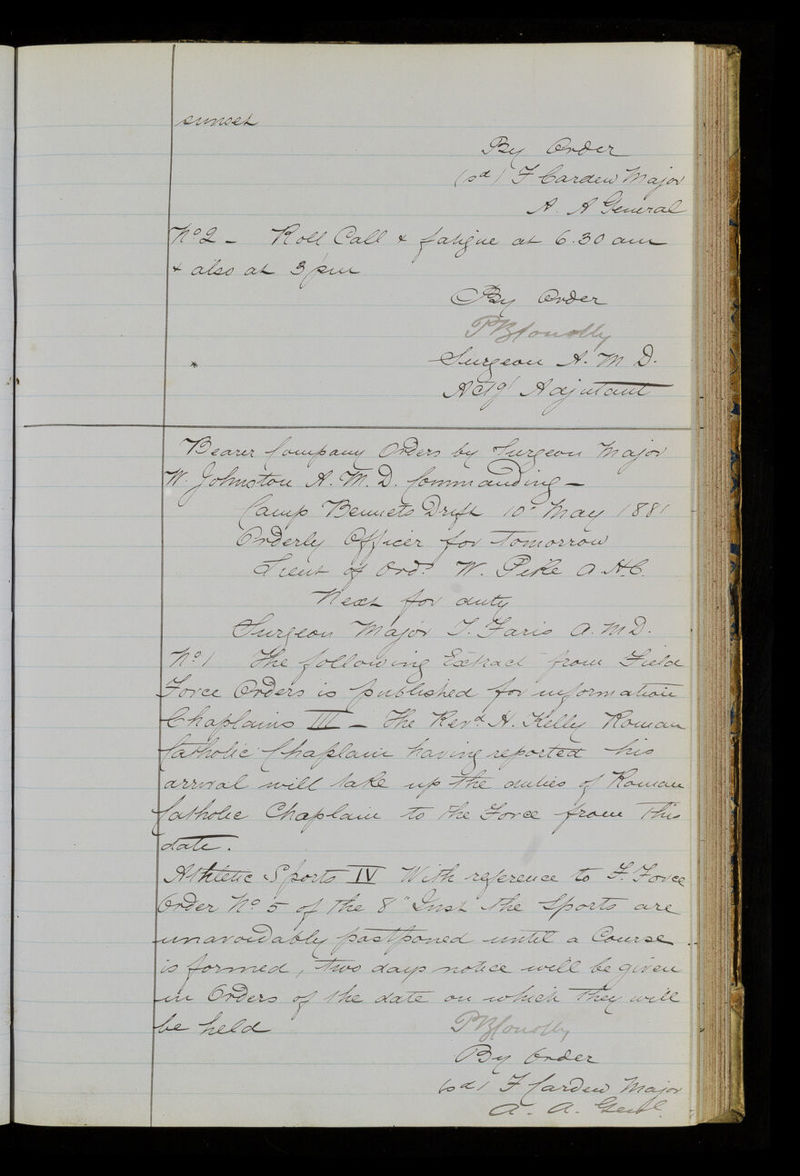 sunset
By Order
(sd) F Carden Major
A. A General
No 2 - Roll Call & fatigue at 6.30 am
& also at 3 pm
By Order
PB Conolly
Surgeon A. M D.
Actg Adjutant
Bearer Company Orders by Surgeon Major
W. Johnston A. M. D. Commanding -
Camp Bennets Drift 10th May 1881
Orderly Officer for Tomorrow
Lieut of Ords W. Pike A H C.
Next for duty
Surgeon Major T. Faris A. M D.
No 1 The following Extract from Field
Force Orders is published for information
Chaplains III - The Revd H. Kelly Roman
Catholic Chaplain having reported his
arrival will take up the duties of Roman
Catholic Chaplain to the Force from This
date.
Athletic Sports IV With reference to F. Force
Order No 5 of the 8" Inst the Sports are
unavoidably postponed until a Course
is formed, two days notice will be given
in Orders of the date on which They will
be held
PB Conolly
By Order
(sd) F Carden Major
A. A. Genl.